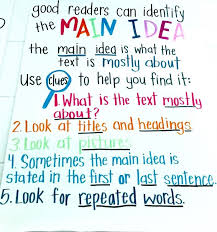 good readers can identify
the MAIN IDEA
the main idea is what the
text is mostly about
use clues to help you find it:
1. What is the text mostly
about?
2. Look at titles and headings
3. Look at pictures
4. Sometimes the main idea is
stated in the first or last sentence.
5. Look for repeated words.